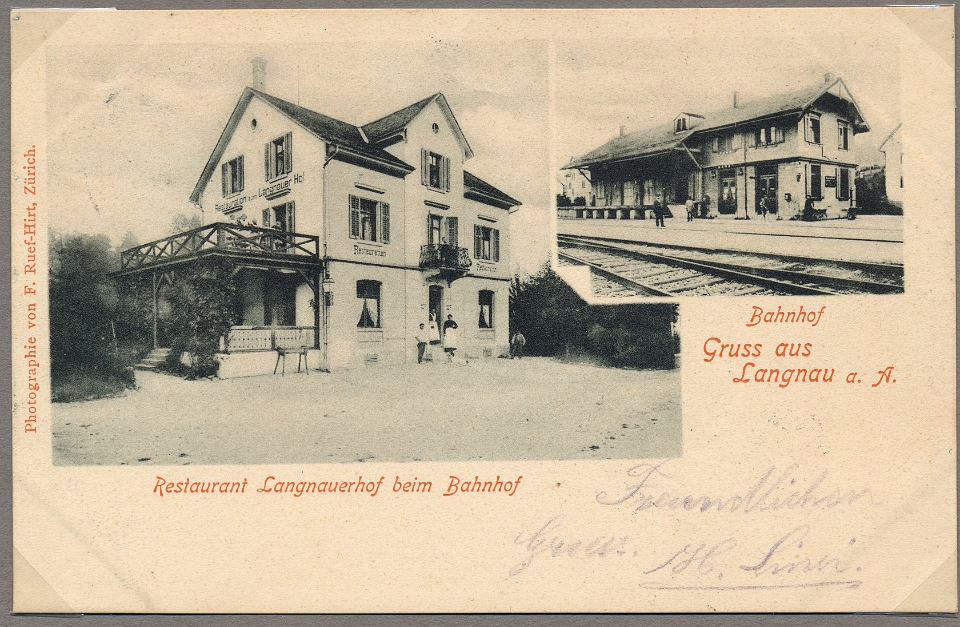 Photographie von F. Ruef-Hirt, Zürich.
Restauration zum Langnauer Hof
Restauration
Restauration
Bahnhof
Gruss aus
Langnau a. A.
Restaurant Langnauerhof beim Bahnhof
Freundlichen
Gruss.